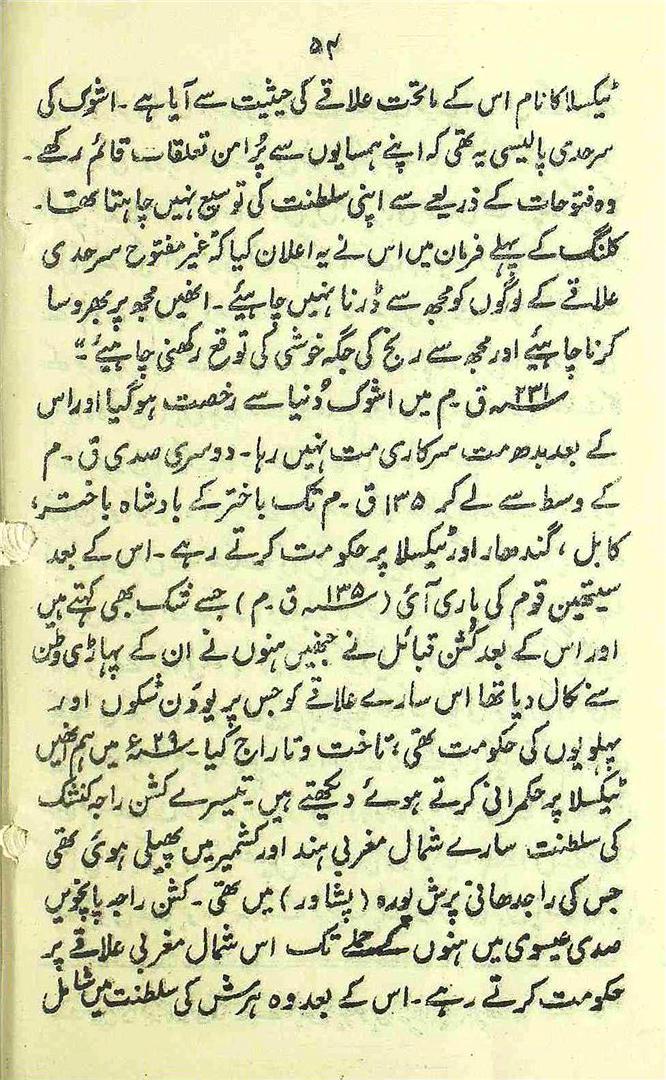 ۵۴
ٹیکسلا کا نام اس کے ماتحت علاقے کی حیثیت سے آیا ہے۔ اشوک کی
سرحدی پالیسی یہ تھی کہ اپنے ہمسایوں سے پُر امن تعلقات قائم رکھے۔
وہ فتوحات کے ذریعے سے اپنی سلطنت کی توسیع نہیں چاہتا تھا۔
کلنگ کے پہلے فرمان میں اس نے یہ اعلان کیا کہ غیر مفتوح سرحدی
علاقے کے لوگوں کو مجھ سے ڈرنا نہیں چاہیئے۔ انھیں مجھ پر بھروسا
کرنا چاہیئے اور مجھ سے رنج کی جگہ خوشی کی توقع رکھنی چاہیئے۔"
۲۳۱؁ ق۔م میں اشوک دُنیا سے رخصت ہو گیا اور اس
کے بعد بدھ مت سرکاری مت نہیں رہا۔ دوسری صدی ق۔م
کے وسط سے لے کر ۱۳۵ ق۔م تک باختر کے بادشاہ باختر،
کابل، گندھار اور ٹیکسلا پر حکومت کرتے رہے۔ اس کے بعد
سیتھین قوم کی باری آئی (۱۳۵؁ ق۔م) جسے شک بھی کہتے ہیں
اور اس کے بعد کُشن قبائل نے جنھیں ہنوں نے ان کے پہاڑی وطن
سے نکال دیا تھا اس سارے علاقے کو جس پر یوون شکوں اور
پہلویوں کی حکومت تھی، تاخت و تاراج کیا۔ ۲۹؁ء میں ہم انھیں
ٹیکسلا پر حکمرانی کرتے ہوئے دیکھتے ہیں۔ تیسرے کشن راجہ کنشک
کی سلطنت سارے شمال مغربی ہند اور کشمیر میں پھیلی ہوئی تھی
جس کی راجدھانی پرش پورہ (پشاور) میں تھی۔ کشن راجہ پانچویں
صدی عیسوی میں ہنوں کے حملے تک اس شمال مغربی علاقے پر
حکومت کرتے رہے۔ اس کے بعد وہ ہرش کی سلطنت میں شامل